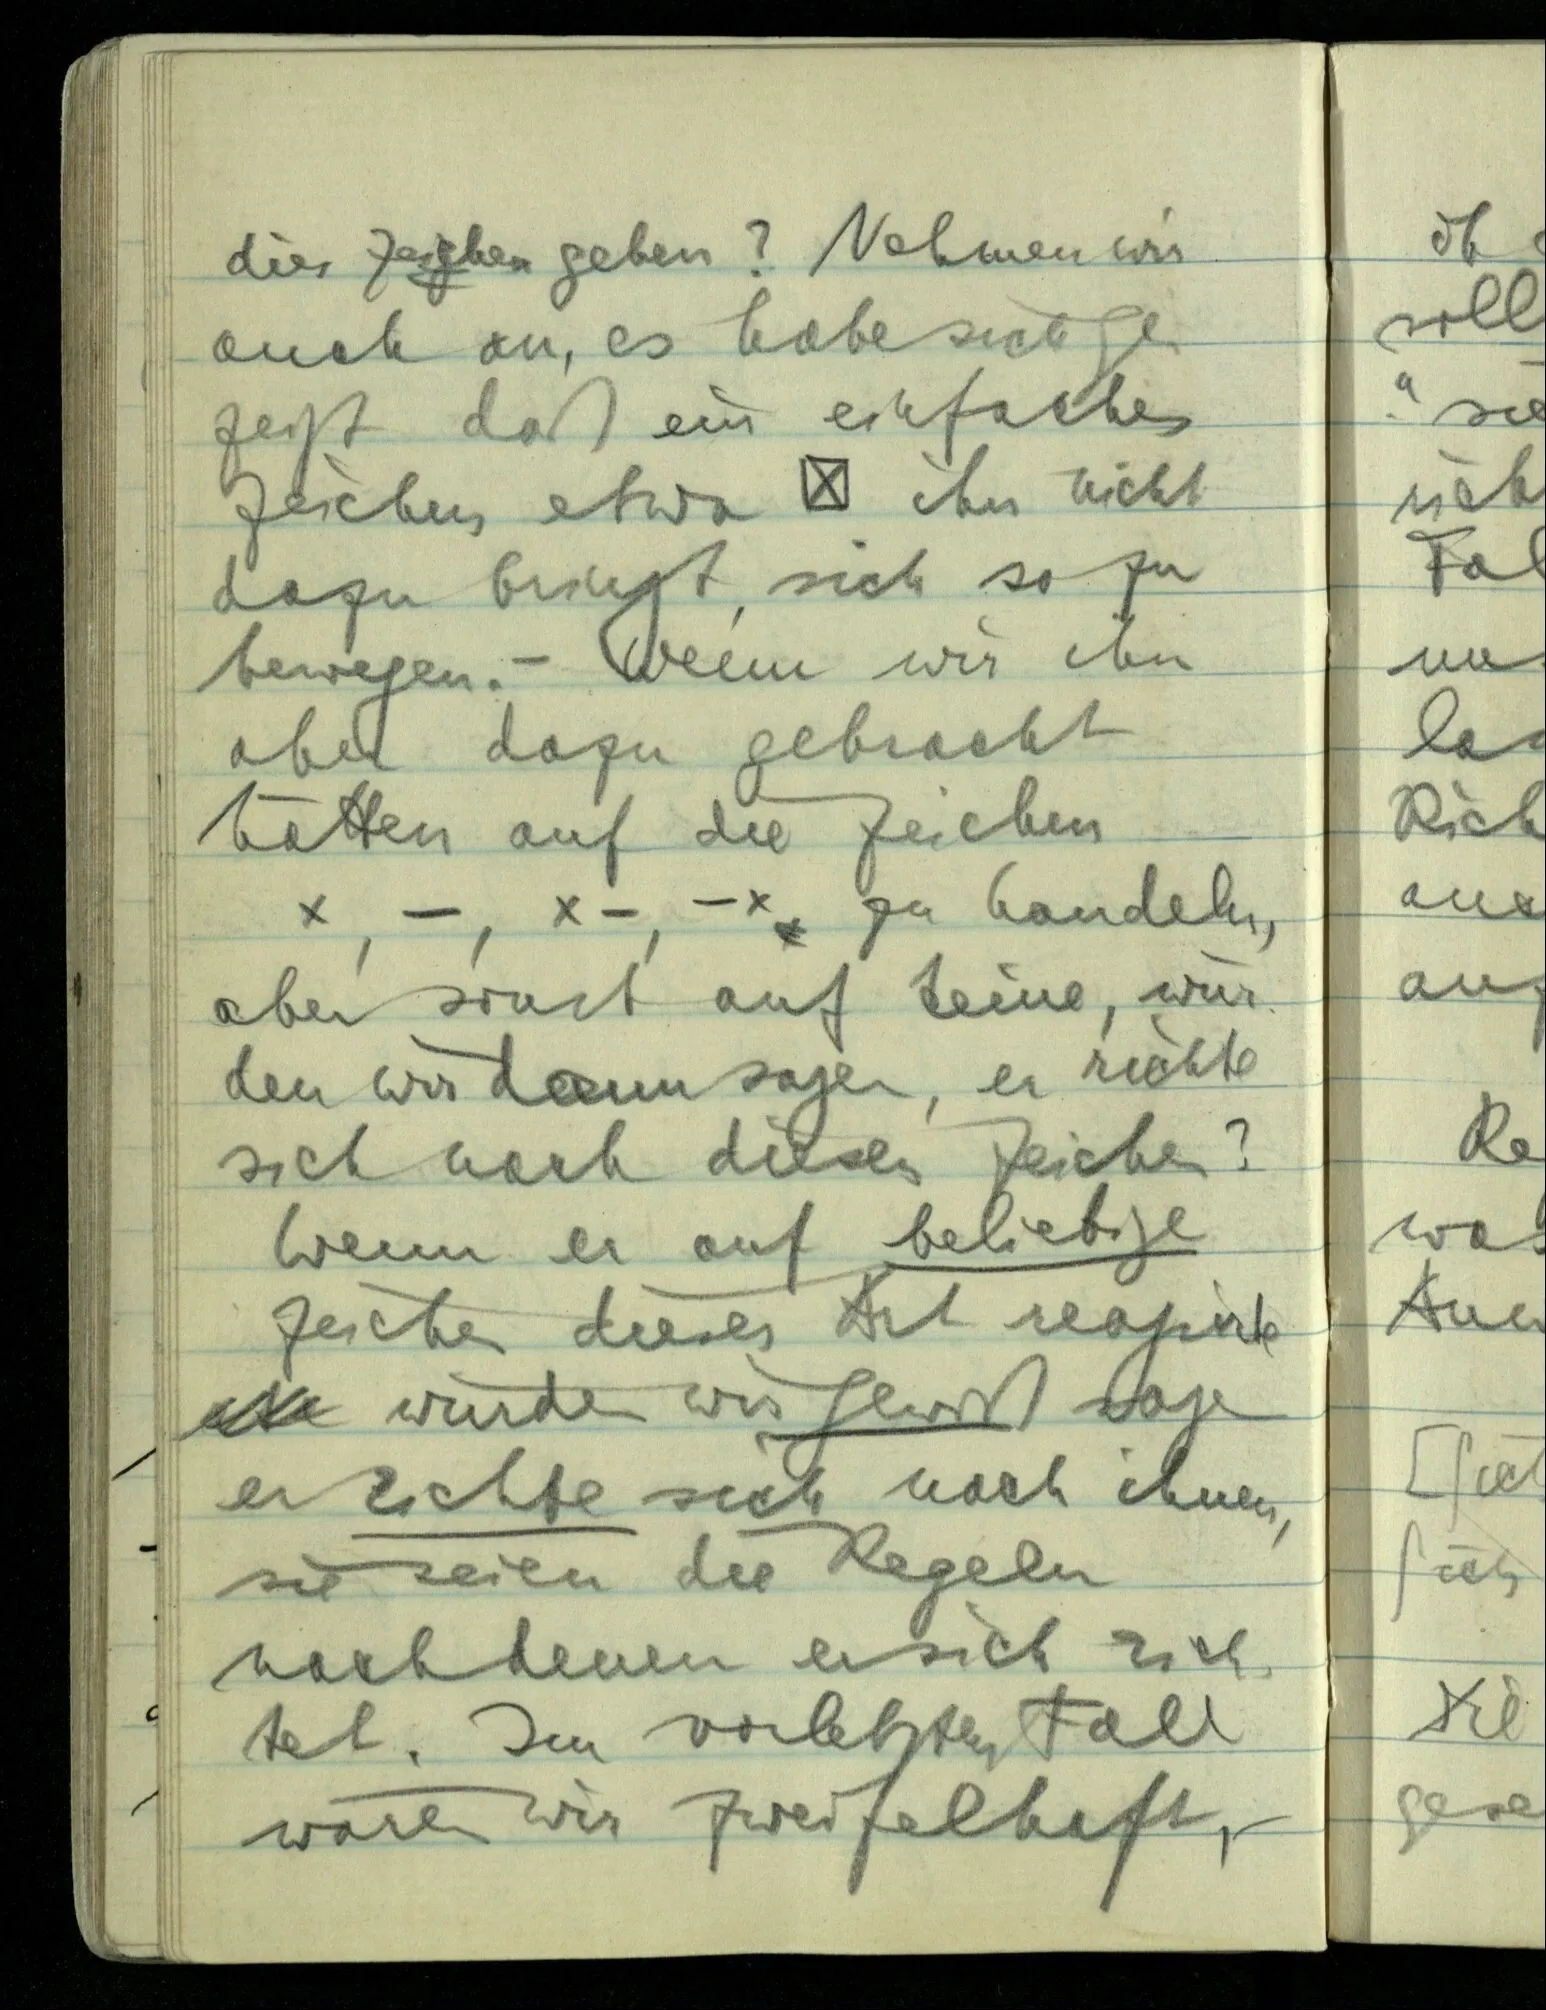 dies Zeichen geben? Nehmen wir
auch an, es habe sich ge
zeigt daß ein einfaches
Zeichen etwa ☒ ihn nicht
dazu bringt, sich so zu
bewegen. – Wenn wir ihn
aber dazu gebracht
hätten auf die Zeichen
x, –, x –, – x, zu handeln,
aber sonst auf keine, wür
den wir dann sagen, er richte
sich nach diesen Zeichen?
Wenn er auf beliebige
Zeichen dieser Art reagierte
würden wir gewiß sagen
er richte sich nach ihnen,
sie seien die Regeln
nach denen er sich rich
tet. Im vorletzten Fall
wären wir zweifelhaft, –